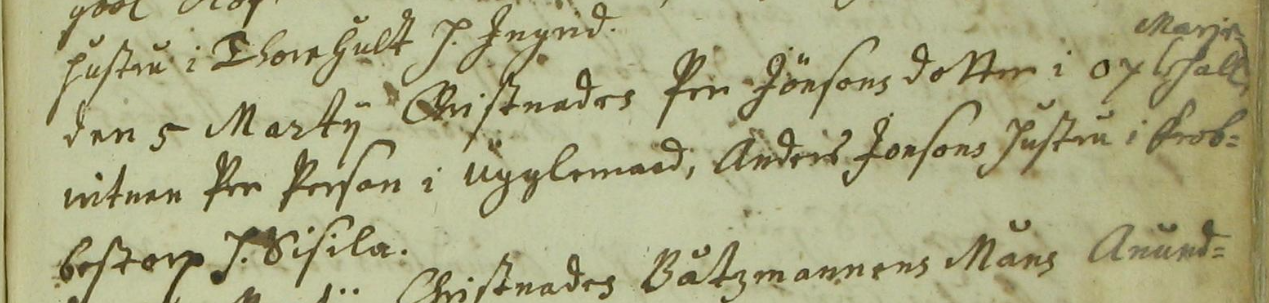 hustru i Thorehult H. Ingrid.
Marje-
den 5 Martij Christnades Per Jönsons dotter i oxlehall
vitnen Per Person i Ugglemaad, Anders Jonsons hustru i krob=
bestorp H. Sisila.
Christnades Båtzmannens Måns Anund=